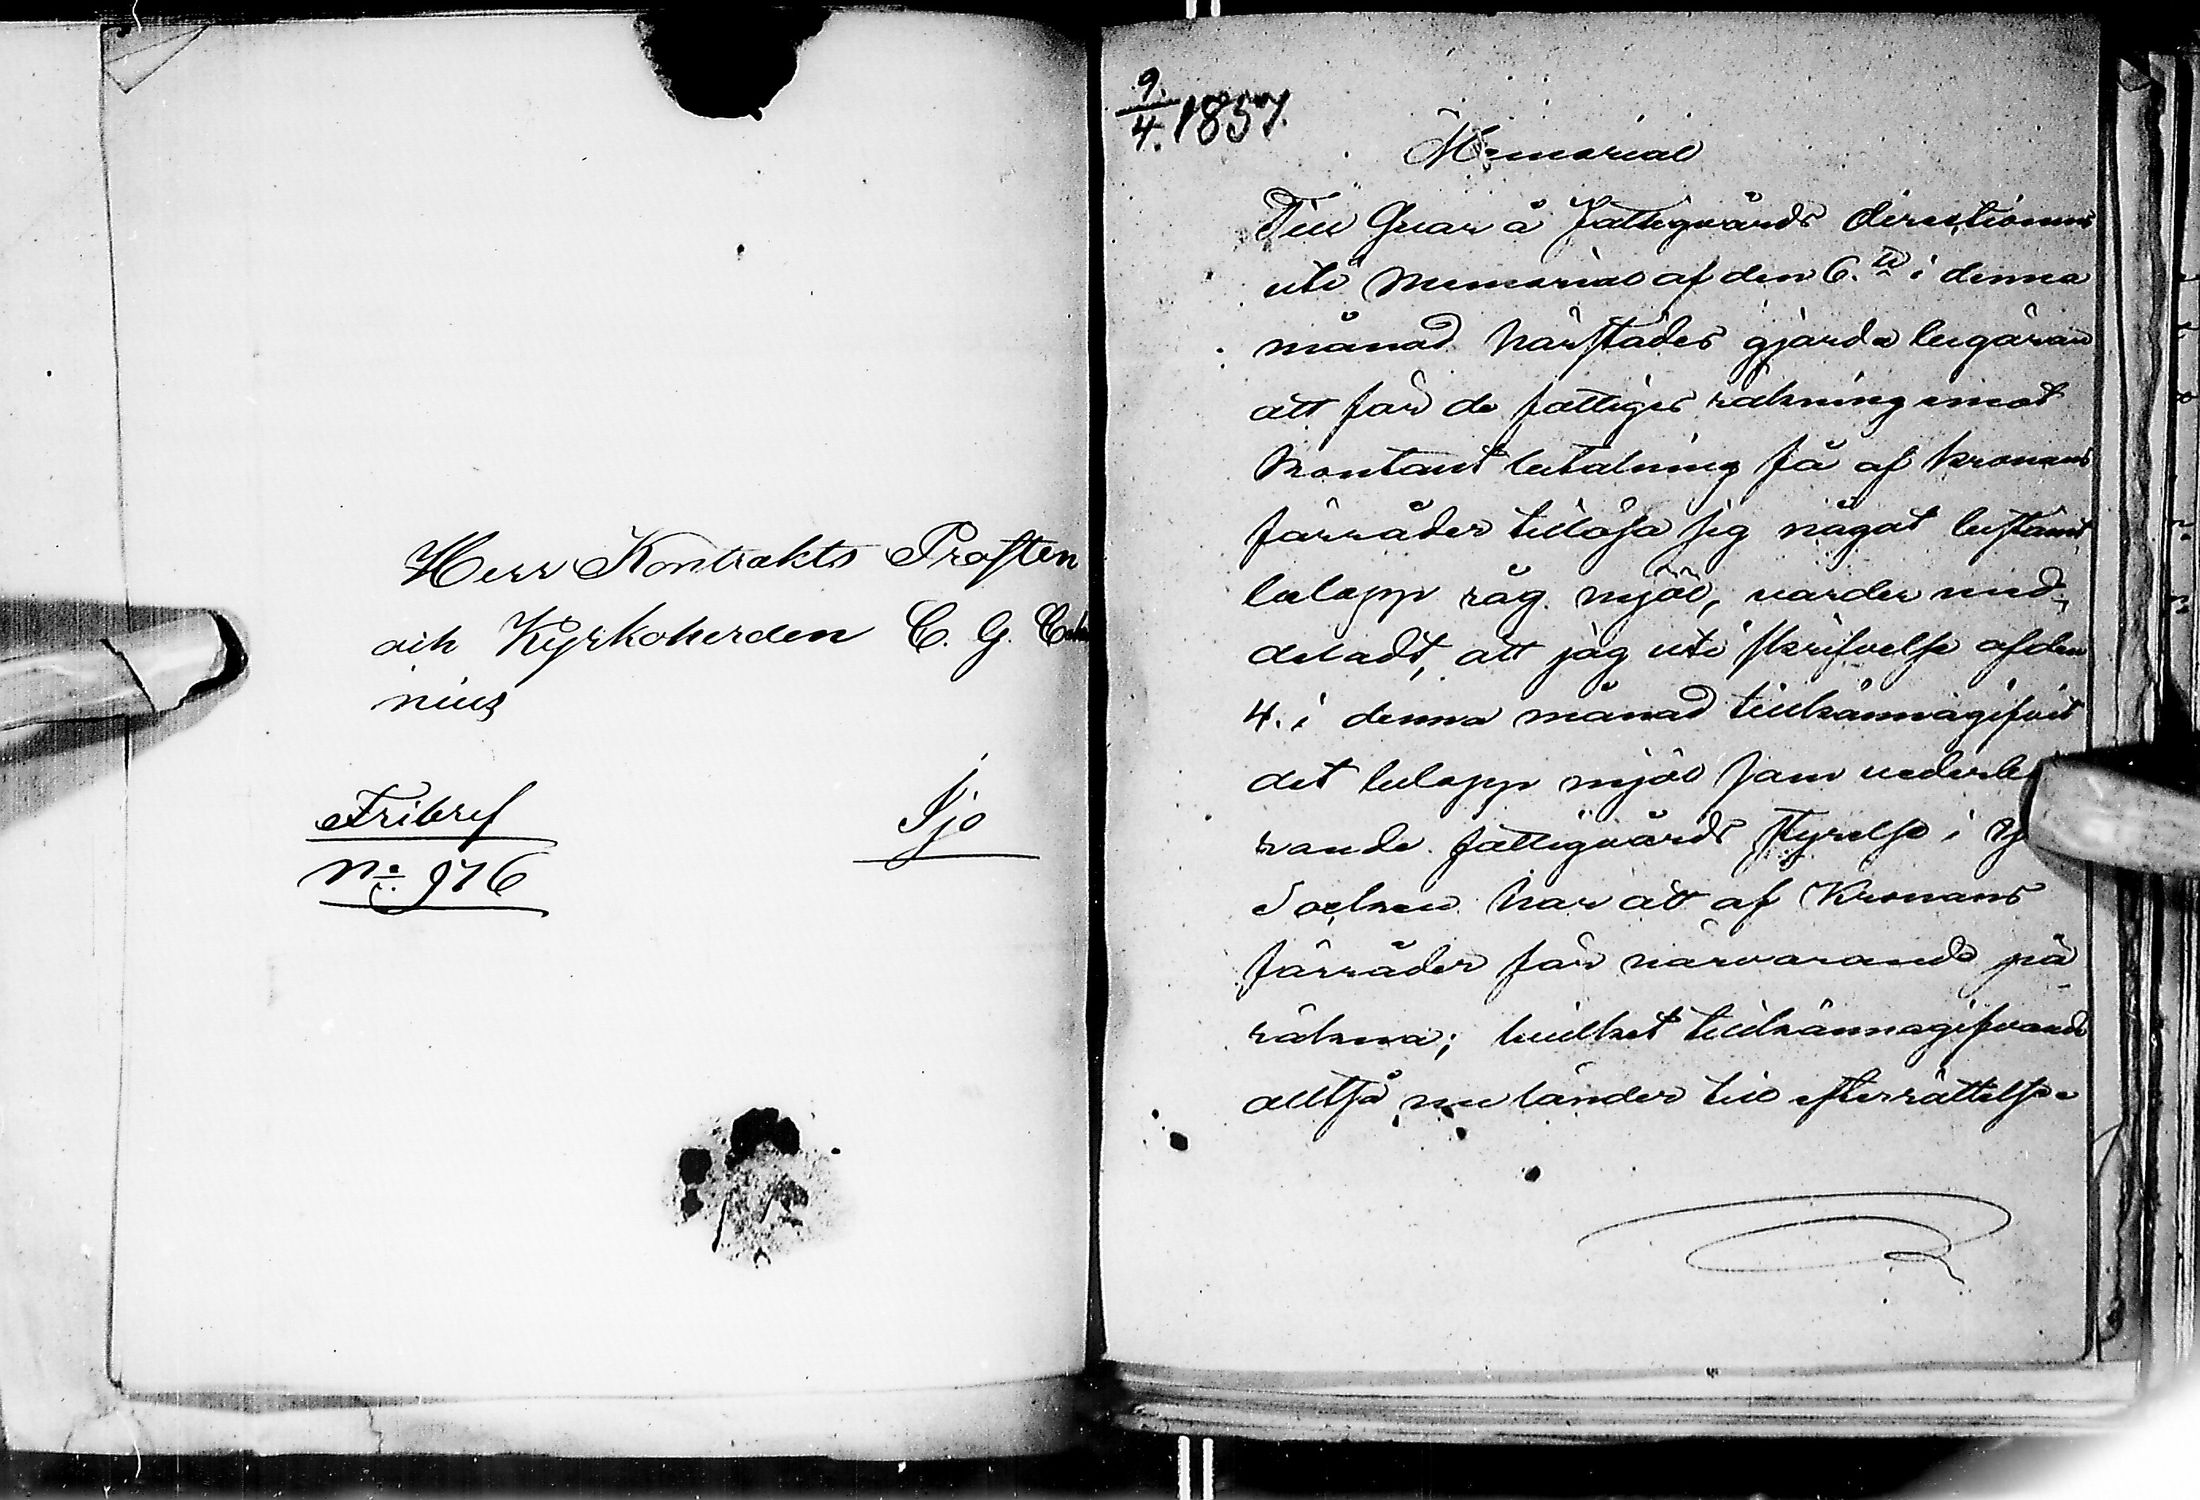 Herr Kontrakts Prosten
och Kyrkoherden C. G.
nius
Fribref
Ijo
No. 976
9/4. 1857.
Memorial
Till Svar å Fattigvårds Direktionens
uti Memorial af den 6.te i denna
månad härstädes gjorda begäran
att för de fattiges räkning emot
kontant betalning få af kronans
förråder tillösa sig något bestämt
belopp råg mjöl, varder med-
deladt, att jag uti skrifvelse af den
4. i denna månad tillkännagifvit
det belopp mjöl som vederbö
rande fattigvårds styrelse i
Socken har att af Kronans
förråder för närvarande på
räkna; hvilket tillkännagifvande
alltså nu länder till efterrättelse